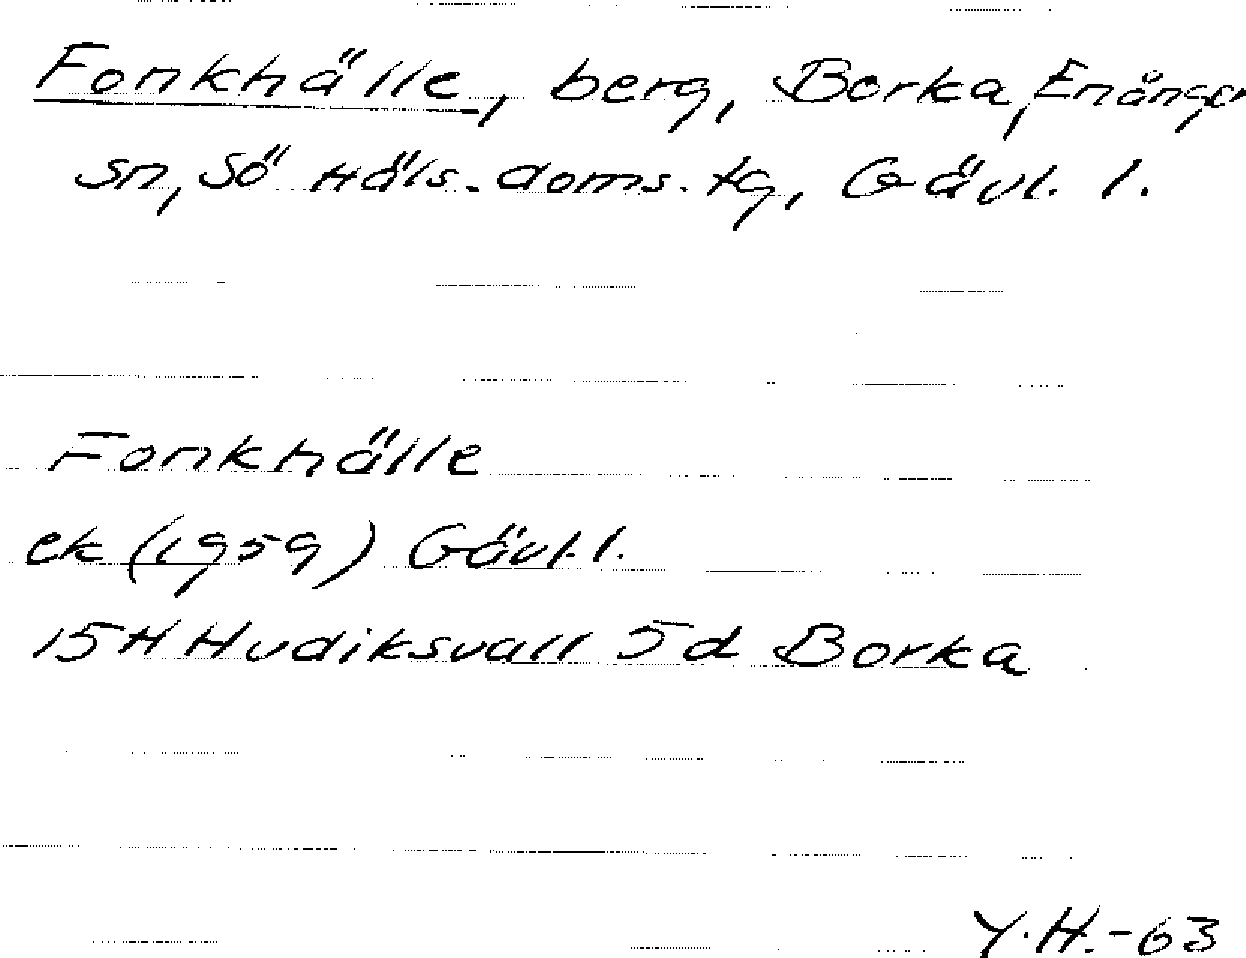 Fonkhälle, berg, Borka, Enånger
sn, Sö Häls. doms. tg, Gävl. l.
Fonkhälle
ek (1959) Gävl. l.
15H Hudiksvall 5d Borka
Y.H.-63